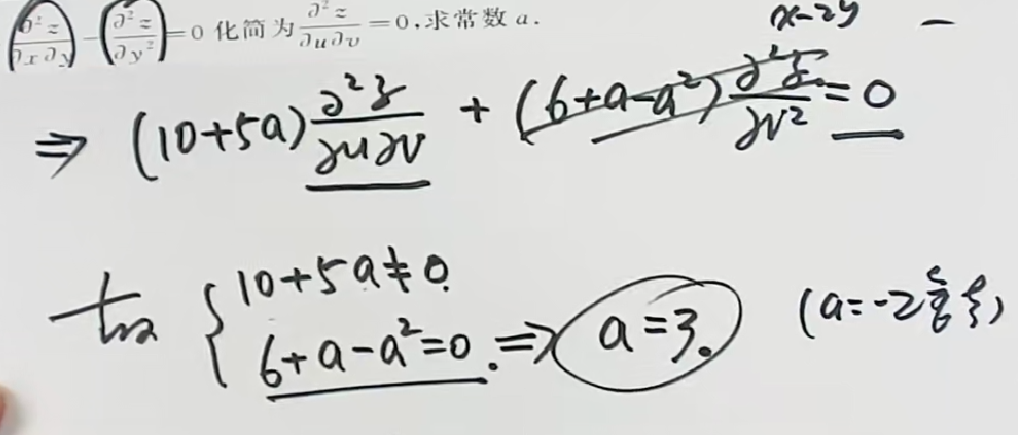 ∂²z/∂x∂y − ∂²z/∂y² = 0 化简为 ∂²z/∂u∂v = 0,求常数 a.
x−2y −
⇒ (10+5a) ∂²z/∂u∂v + (6+a−a²) ∂²z/∂v² = 0
{ 10+5a≠0.
6+a−a²=0. ⇒ a=3.
(a=-2